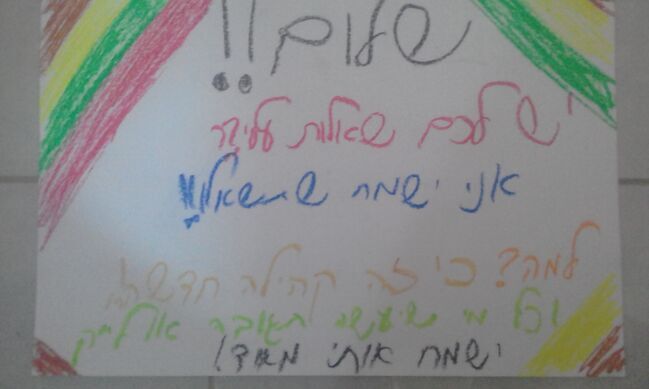 שלום!!
יש לכם שאלות עליי?
אני ישמח שתשאלו!!
למה? כי זה קהילה חדשה!!
וכל מי שיעשה תגובה או לייק
ישמח אותי מאוד!